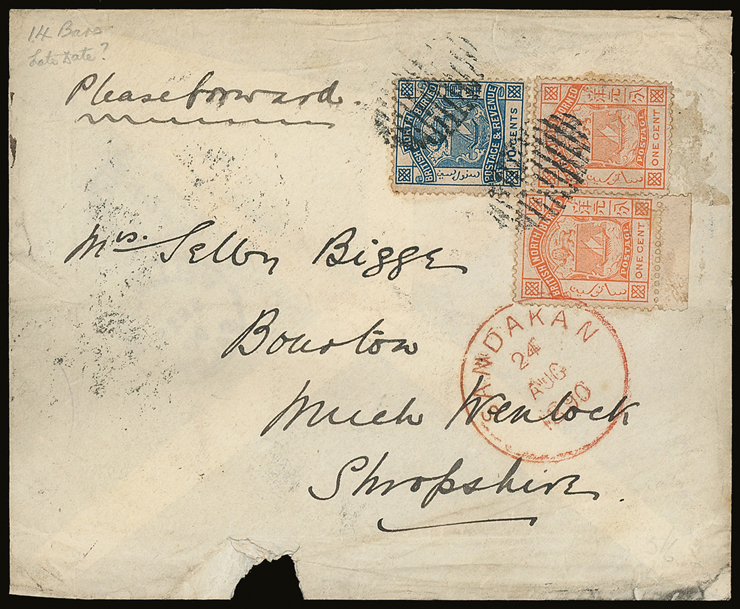 14 Bars
Late Date?
Please forward.
BRITISH NORTH BORNEO
POSTAGE & REVENUE
10 CENTS
BRITISH NORTH BORNEO
POSTAGE
ONE CENT
分元洋
BRITISH NORTH
POSTAGE
ONE CENT
分元洋
Mrs. Selby Bigge
Bourton
Much Wenlock
Shropshire.
SANDAKAN
24
AUG
1890